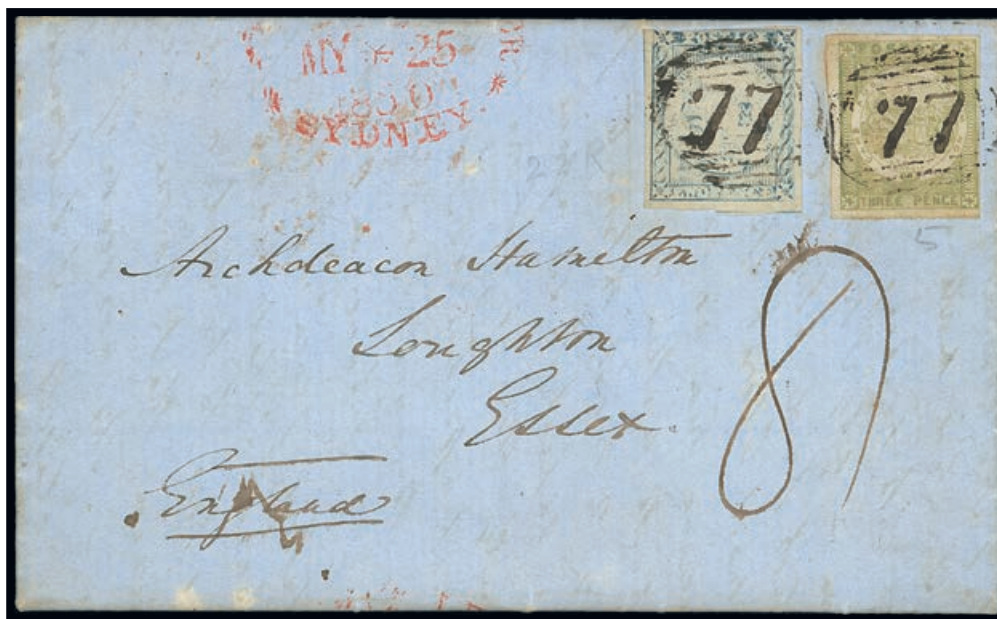 MY * 25
1850
SYDNEY.
77
77
THREE PENCE
5
Archdeacon Hamilton
Loughton
Essex.
8
England